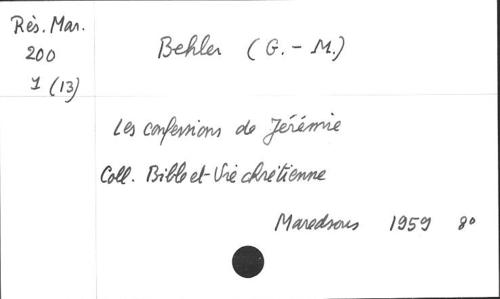 Rès. Mar.
200
1 (13)
Behler (G. - M.)
Les confessions de Jérémie
Coll. Bible et Vie chrétienne
Maredsous 1959 8°